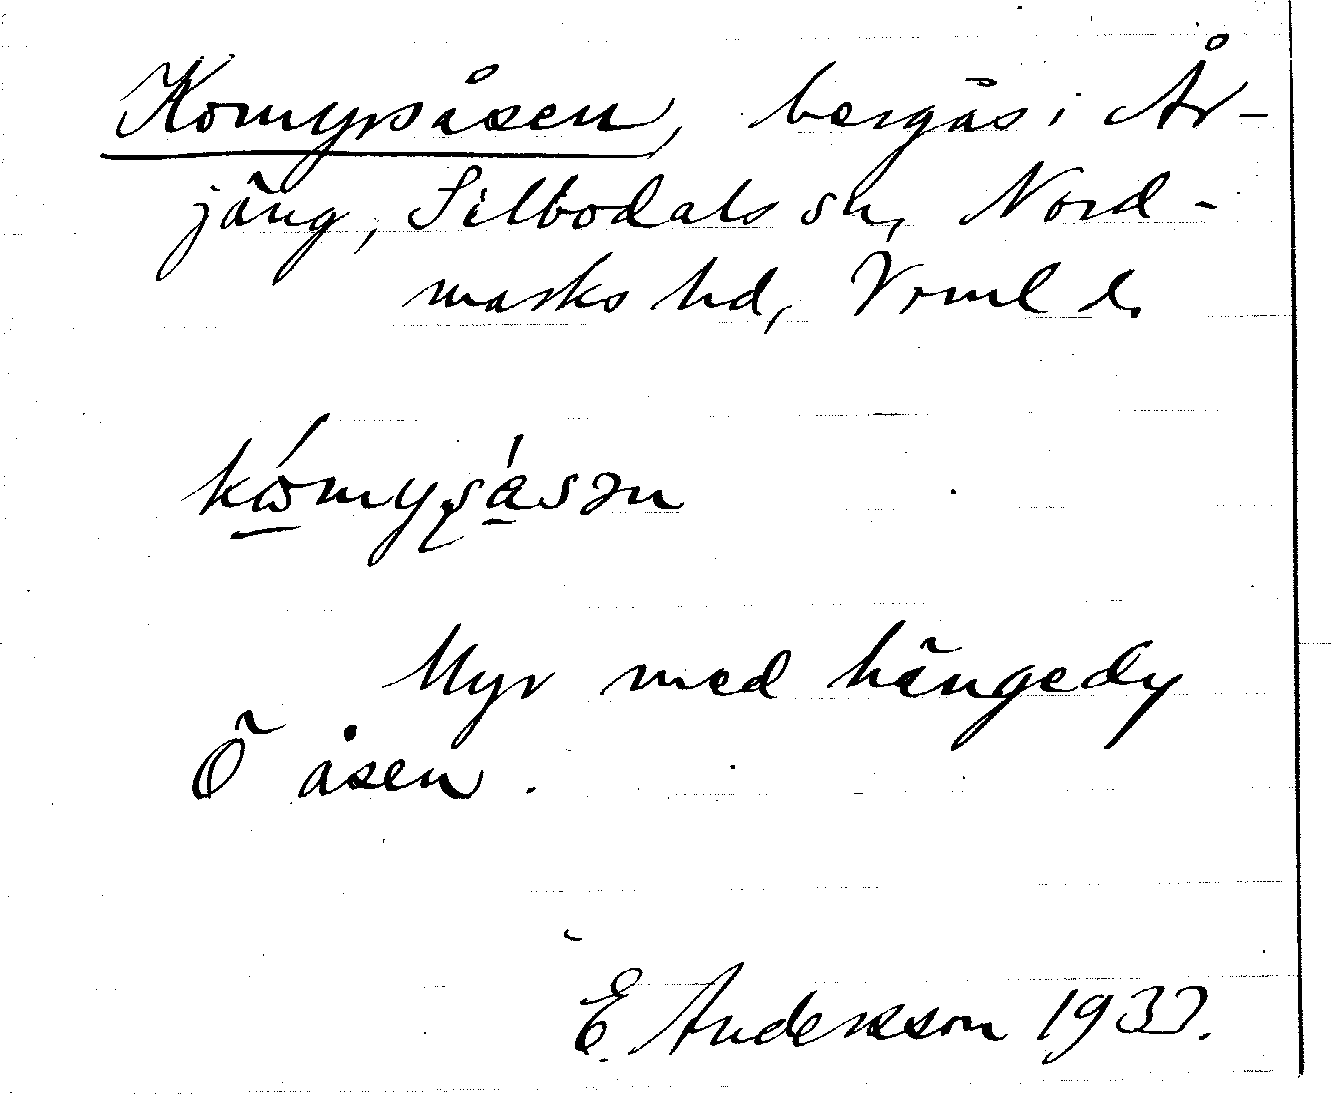 Komyrsåsen, bergås i År-
jäng, Silbodals sn, Nord-
marks hd, Vrml l.
kómyʂásən
Myr med hängedy
Ö åsen.
E. Andersson 1937.